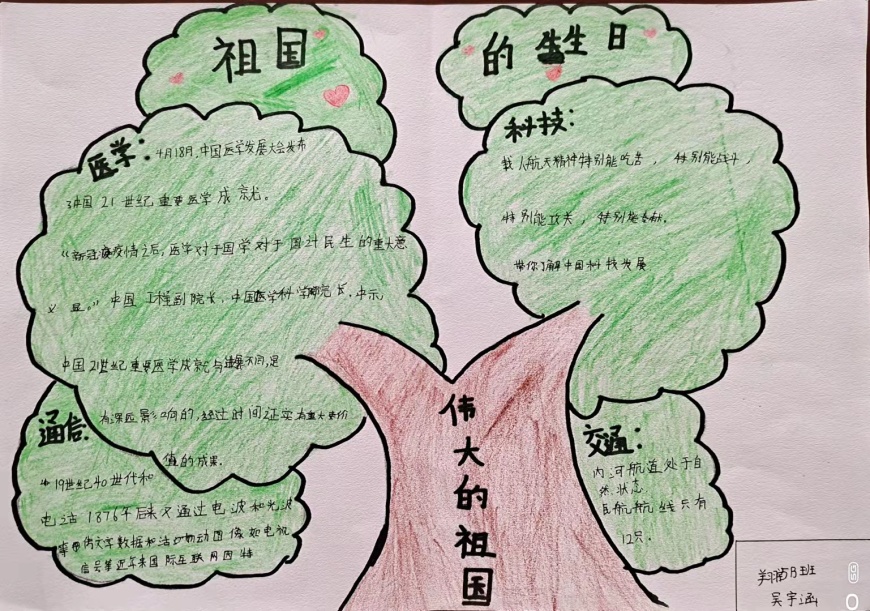 祖国
的生日
医学：4月18日，中国医学发展大会发布
了中国21世纪重要医学成就。
“新冠疫情之后，医学对于国学对于国计民生的重大意
义 显。”中国工程副院长，中国医学科学院院长，
中国21世纪重要医学成就与 不同，是
有深远影响的，经过时间证实有重大 价
值的成果。
科技：
我 人航天精神特别能吃苦，特别能战斗，
特别能攻关，特别能奉献。
带你了解中国科技发展
通信：
19世纪40世代和
电话1876年后来又通过电波和光波
文字数据和活动物动图像如电视
信号等近年来国际互联网因特
交通：
内河航道处于自
然状态，
民航航线只有
12只。
伟大的祖国
班
吴宇涵